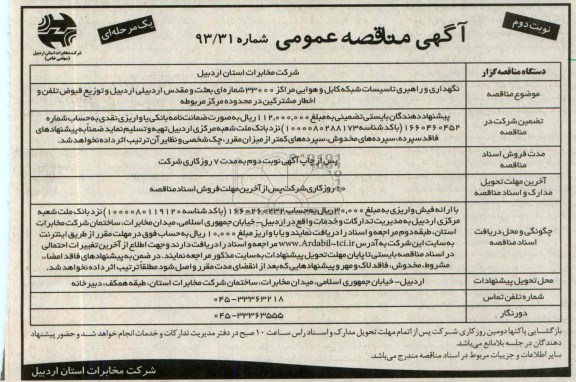 نوبت دوم
آگهی مناقصه عمومی شماره ۹۳/۳۱
یک مرحله‌ای
شرکت مخابرات استان اردبیل
(سهامی خاص)
دستگاه مناقصه‌گزار
شرکت مخابرات استان اردبیل
موضوع مناقصه
نگهداری و راهبری تاسیسات شبکه کابل و هوایی مراکز ۳۳۰۰۰ شماره‌ای بعثت و مقدس اردبیلی اردبیل و توزیع قبوض تلفن و
اخطار مشترکین در محدوده مرکز مربوطه
تضمین شرکت در
مناقصه
پیشنهاددهندگان بایستی تضمینی به مبلغ ۱۱۲,۰۰۰,۰۰۰ ریال به صورت ضمانت‌نامه بانکی یا واریزی نقدی به حساب شماره
۱۶۶۰۴۶۰۴۵۲ (باکد شناسه ۱۰۰۰۰۰۸۰۲۸۸۱۷۳) نزد بانک ملت شعبه مرکزی اردبیل تهیه و تسلیم نماید ضمناً به پیشنهادهای
فاقد سپرده، سپرده‌های مخدوش، سپرده‌های کمتر از میزان مقرر، چک شخصی و نظایر آن ترتیب اثر داده نخواهد شد.
مدت فروش اسناد
مناقصه
پس از چاپ آگهی نوبت دوم به مدت ۷ روز کاری شرکت
آخرین مهلت تحویل
مدارک و اسناد مناقصه
۱۰ روز کاری شرکت پس از آخرین مهلت فروش اسناد مناقصه
چگونگی و محل دریافت
اسناد مناقصه
با ارائه فیش واریزی به مبلغ ۳۰,۰۰۰ ریال به حساب ۱۶۶۰۲۶۰۲۳۲ (باکد شناسه ۱۰۰۰۰۰۸۰۱۱۹۱۲۰) نزد بانک ملت شعبه
مرکزی اردبیل به مدیریت تدارکات و خدمات واقع در اردبیل – خیابان جمهوری اسلامی، میدان مخابرات، ساختمان شرکت مخابرات
استان، طبقه دوم مراجعه و اسناد را دریافت نمایند و یا با واریز مبلغ ۱۰,۰۰۰ ریال به حساب فوق در مهلت مقرر از طریق اینترنت
به سایت این شرکت به آدرس www.Ardabil-tci.ir مراجعه و اسناد را دریافت دارند و جهت اطلاع از آخرین تغییرات احتمالی
در اسناد مناقصه بایستی تا پایان مهلت تحویل پیشنهادات به سایت مذکور مراجعه نمایند. در ضمن به پیشنهادهای فاقد امضاء،
مشروط، مخدوش، فاقد لاک و مهر و پیشنهادهایی که بعد از انقضای مدت مقرر واصل شود مطلقاً ترتیب اثر داده نخواهد شد.
محل تحویل پیشنهادات
اردبیل – خیابان جمهوری اسلامی، میدان مخابرات، ساختمان شرکت مخابرات استان، طبقه همکف، دبیرخانه
شماره تلفن تماس
۰۴۵–۳۳۳۶۳۲۱۸
دورنگار
۰۴۵–۳۳۳۶۳۵۵۵
بازگشایی پاکتها دومین روز کاری شرکت پس از اتمام مهلت تحویل مدارک و اسناد راس ساعت ۱۰ صبح در دفتر مدیریت تدارکات و خدمات انجام خواهد شد و حضور پیشنهاد
دهندگان در جلسه بلامانع می‌باشد.
سایر اطلاعات و جزییات مربوط در اسناد مناقصه مندرج می‌باشد.
شرکت مخابرات استان اردبیل